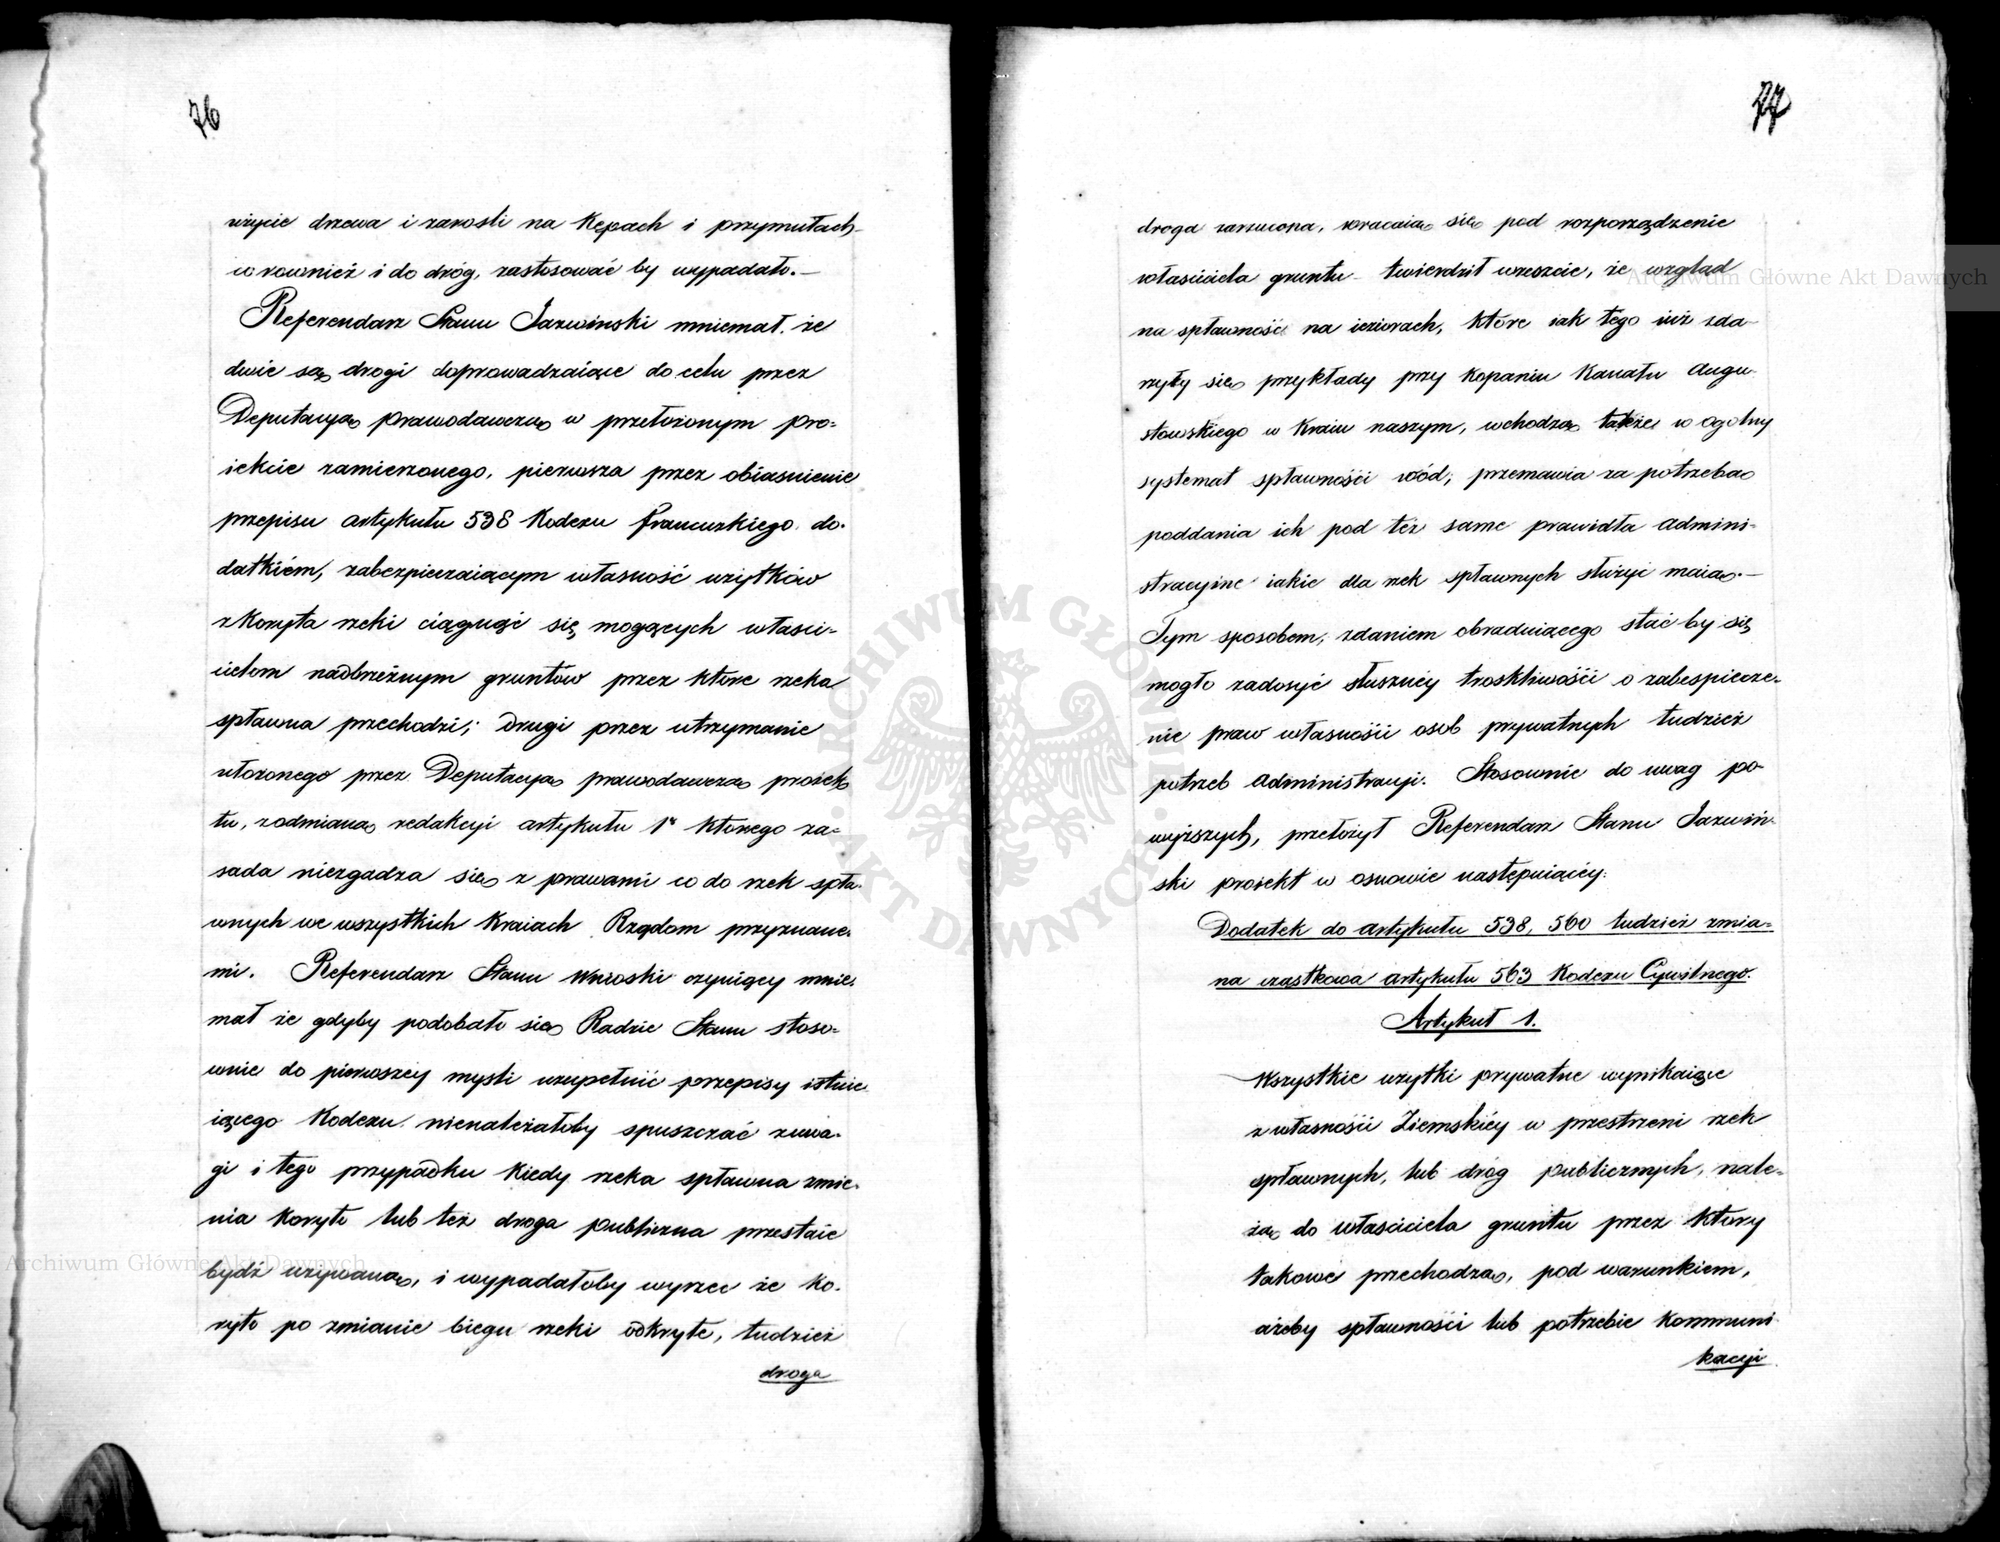 76
użycie drzewa i zarośli na kępach i przymułach
co również i do dróg, zastosować by wypadało.—
Referendarz Stanu Jazwiński mniemał, że
dwie są drogi doprowadzaiące do celu przez
Deputacyą prawodawczą w przełożonym pro-
iekcie zamierzonego, pierwsza przez obiasnienie
przepisu artykułu 538 Kodexu francuzkiego do-
datkiem, zabezpieczaiącym własność użytków
z koryta rzeki ciągnąć się mogących właści-
cielom nadbrzeżnym gruntów przez które rzeka
spławna przechodzi; drugi przez utrzymanie
ułożonego przez Deputacyą prawodawczą proiek-
tu, z odmianą redakcyi artykułu 1º którego za-
sada niezgadza się z prawami co do rzek spła-
wnych we wszystkich kraiach Rządom przyznane-
mi. Referendarz Stanu wnioski czyniący mnie-
mał że gdyby podobało się Radzie Stanu stoso-
wnie do pierwszey mysli uzupełnić przepisy istnie-
iącego Kodexu nienależałoby spuszczać z uwa-
gi i tego przypadku kiedy rzeka spławna zmie-
nia koryto lub też droga publiczna przestaie
bydź używaną, i wypadałoby wyrzec że ko-
ryto po zmianie biegu rzeki odkryte, tudzież
droga
77
droga zarzucona, wracaią się pod rozporządzenie
właściciela gruntu twierdził wreszcie, że wzgląd
na spławność na ieziorach, które iak tego iuż zda-
rzyły się przykłady przy kopaniu Kanału Augu-
stowskiego w Kraiu naszym, wchodzą także w ogolny
systemat spławności wód, przemawia za potrzebą
poddania ich pod też same prawidła admini-
stracyine iakie dla rzek spławnych służyć maią.—
Tym sposobem, zdaniem obraduiącego stać by się
mogło zadosyć słuszney troskliwości o zabespiecze-
nie praw własności osob prywatnych tudzież
potrzeb administracyi. Stosownie do uwag po-
wyższych, przełożył Referendarz Stanu Jazwiń-
ski proiekt w osnowie następuiącey:
Dodatek do artykułu 538, 560 tudzież zmia-
na cząstkowa artykułu 563 Kodexu Cywilnego.
Artykuł 1.
Wszystkie użytki prywatne wynikaiące
z własności Ziemskiey w przestrzeni rzek
spławnych, lub dróg publicznych, nale-
żą do właściciela gruntu przez który
takowe przechodzą, pod warunkiem,
ażeby spławności lub potrzebie kommuni-
kacyi
Archiwum Główne Akt Dawnych
Archiwum Główne Akt Dawnych
ARCHIWUM GŁÓWNE AKT DAWNYCH